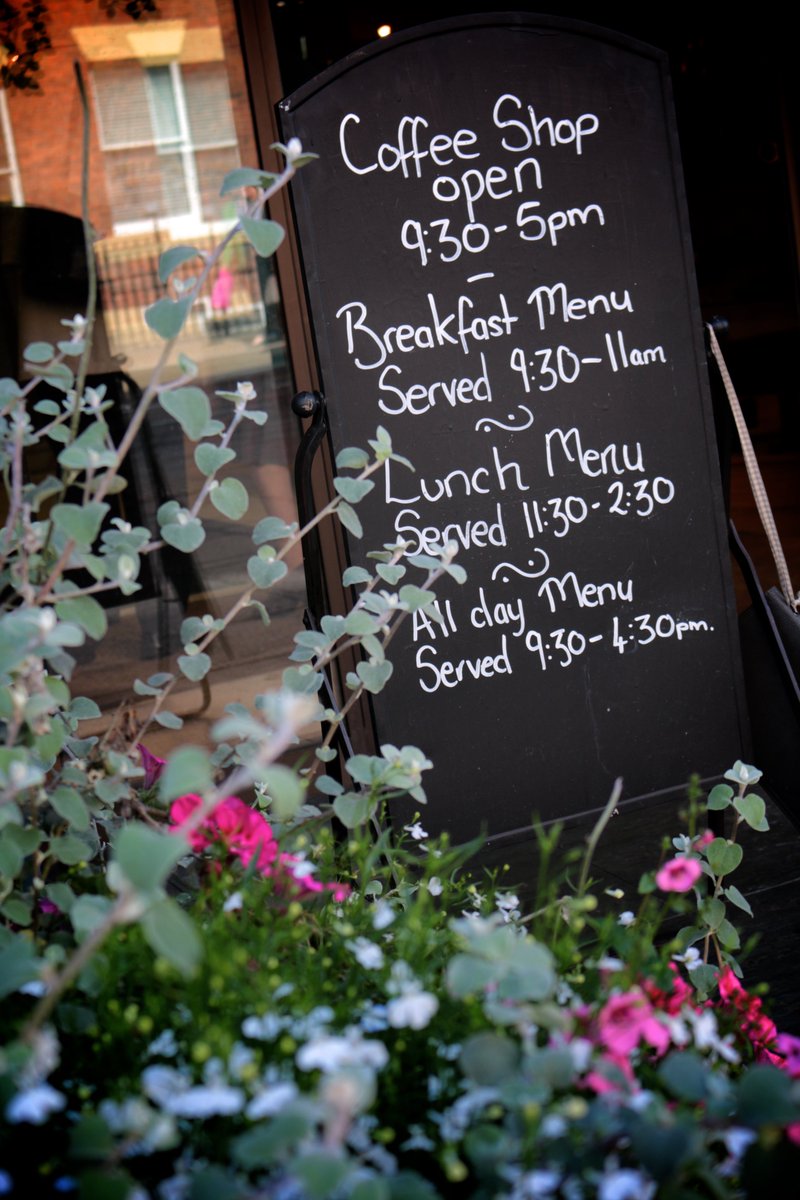 Coffee Shop
open
9:30-5pm
-
Breakfast Menu
Served 9:30-11am
Lunch Menu
Served 11:30-2:30
All day Menu
Served 9:30-4:30pm.